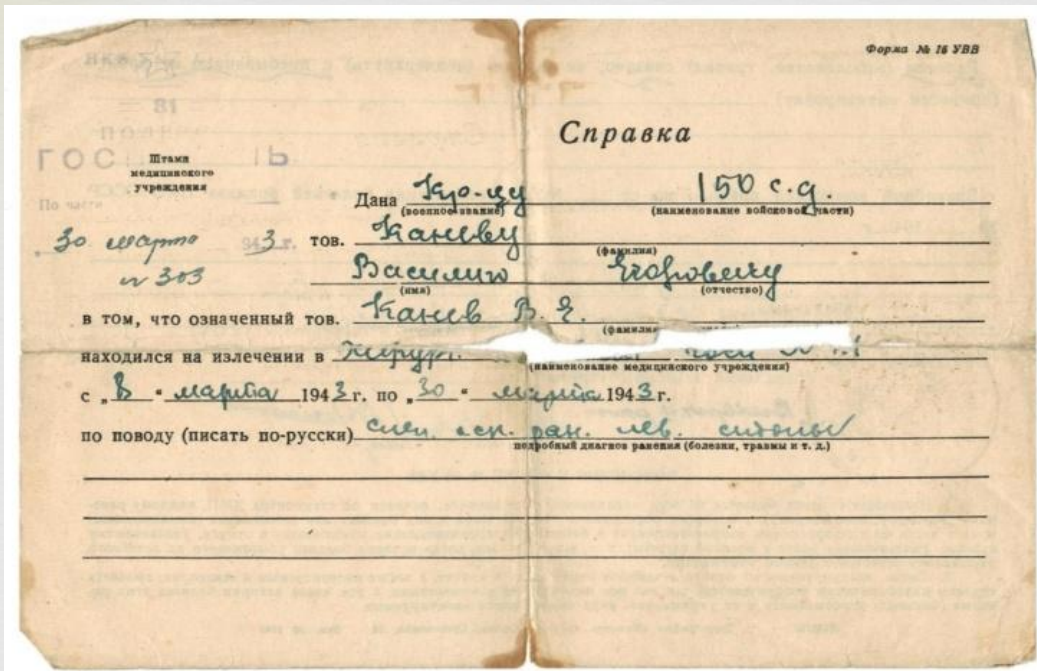 Форма № 16 УВВ
Справка
Штамп
медицинского
учреждения
ГОС
По части
Дана Кр-цу 150 с.д.
(военное звание) (наименование войсковой части)
30 марта 1943 г. тов. Каневу
(фамилия)
№ 303
Василию Егоровичу
(имя) (отчество)
в том, что означенный тов. Канев В. Е.
(фамилия
находился на излечении в Хирург.
(наименование медицинского учреждения)
с „8 “ марта 1943 г. по „30 “ марта 1943 г.
по поводу (писать по-русски) слеп. оск. ран. лев. стопы
подробный диагноз ранения (болезни, травмы и т. д.)